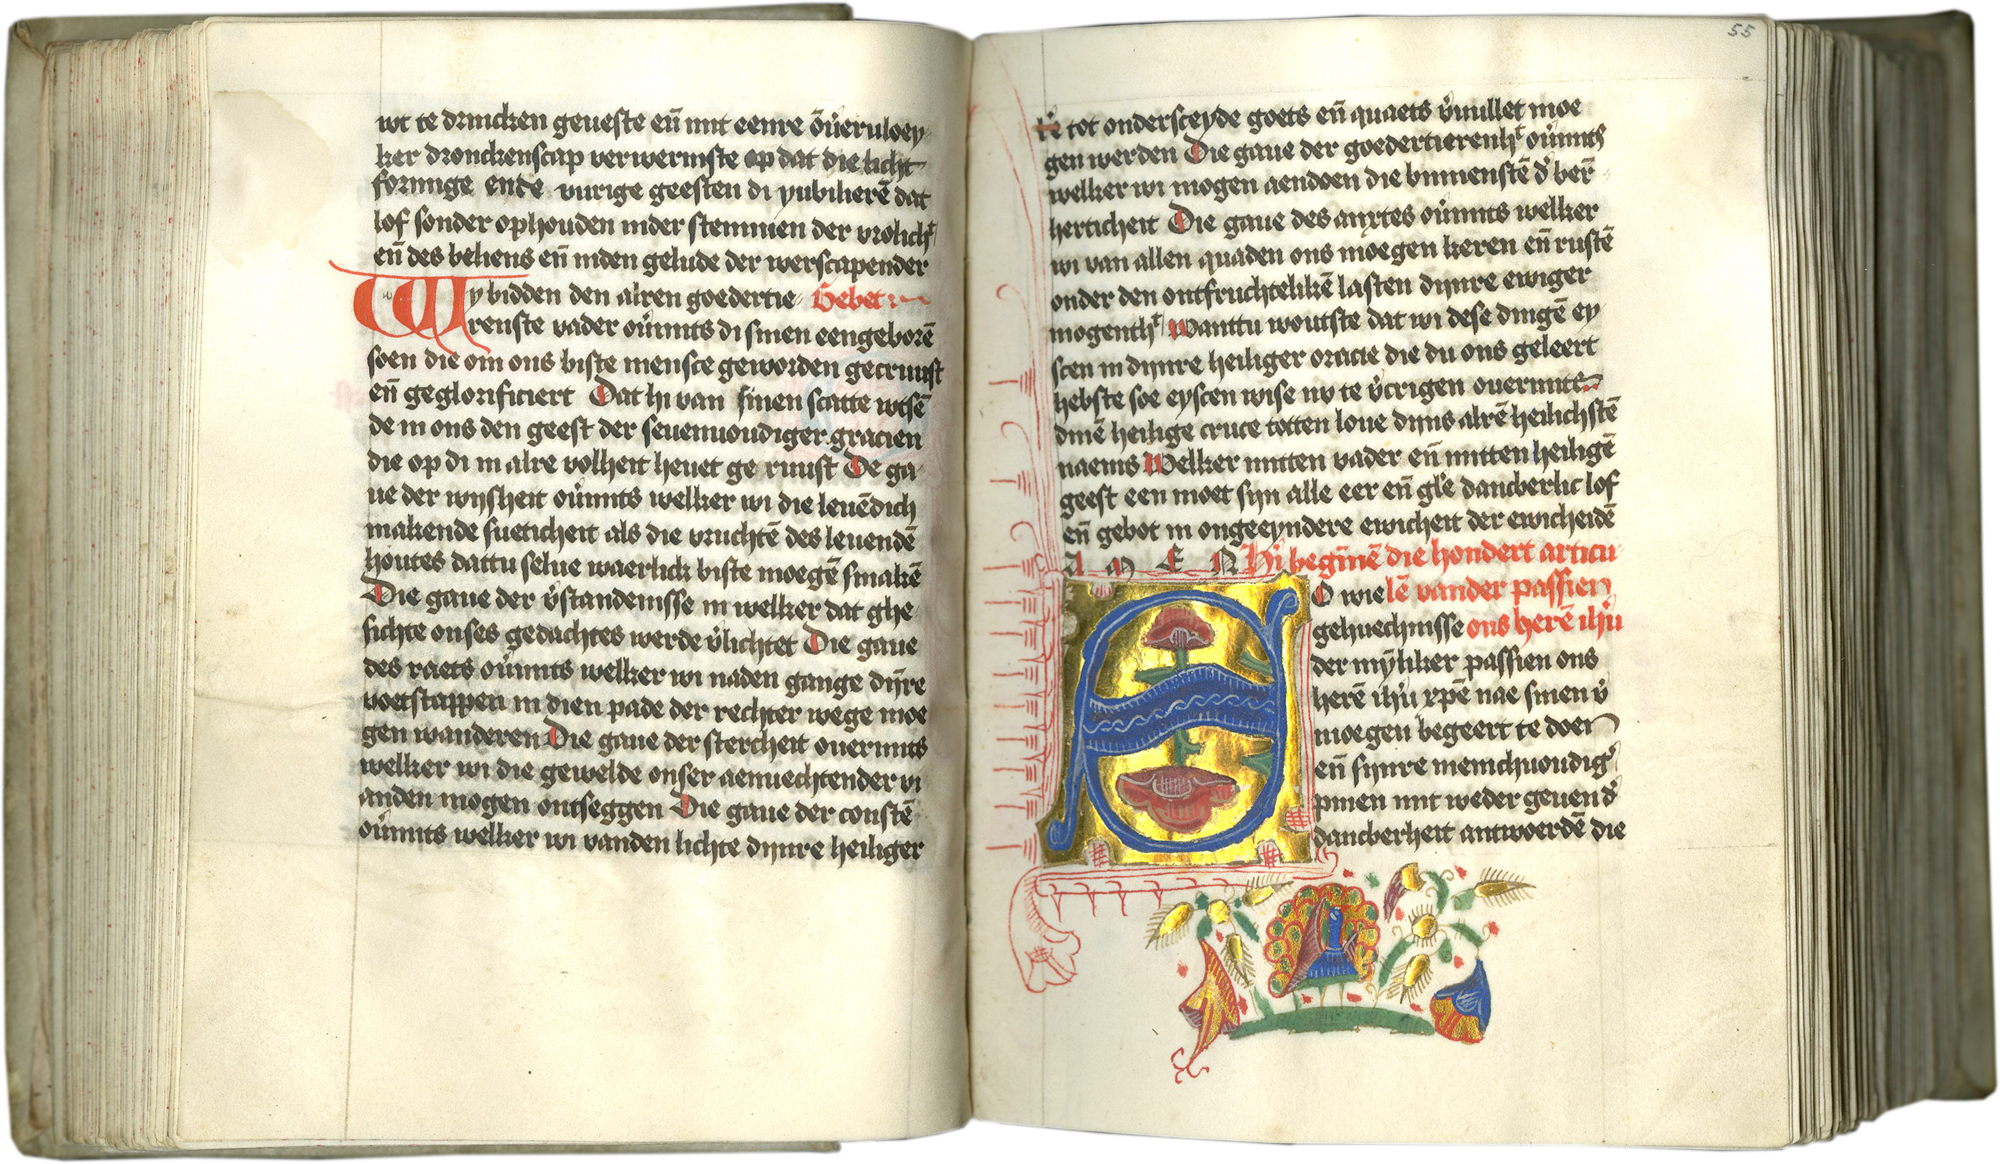 wt te drincken geueste en̄ mit eenre ōu̇eruloey
ker dronckenscap verwermste op dat die licht
formige ende vurige geesten di yubilierē dat
lof sonder ophouden inder stemmen der vrolich<sup>t</sup>
en̄ des beliens en̄ inden gelude der werscapender
Wy bidden den alren goedertie Gebet
renste vader ou̇mits di sinen eengeborē
soen die om ons biste mensce geworden gecruust
en̄ geglorificiert Dat hi van sinen scatte wtsē
de in ons den geest der seuenuoudiger gracien
die op di in alre volheit heuet ge ruust De ga
ue der wijsheit ou̇mits welker wi die leuēdich
makende sueticheit als die vruchtē des leuendē
houtes dattu selue waerlick biste moegē smakē
Die gaue der v̇standenisse in welker dat ghe
sichte onses gedachtes werde v̇lichtet Die gaue
des raets ou̇mits welker wi naden gange dijre
voetstappen in dien pade der rechter wege moe
gen wanderen Die gaue der stercheit ouermits
welker wi die gewelde onser aenuechtender vi
anden mogen ontseggen Die gaue der constē
ou̇mits welker wi vanden lichte dijnre heiliger
55
tot ondersceyde goets en̄ quaets v̇uullet moe
gen werden Die gaue der goedertierenh<sup>t</sup> ou̇mits
welker wi mogen aendoen die binnenstē ḋ ber
herticheit Die gaue des anxtes ou̇mits welker
wi van allen quaden ons moegen keren en̄ rustē
onder den ontfruchtelikē lasten dijnre ewiger
mogenth<sup>t</sup> Wanttu woutste dat wi dese dingē ey
scen in dijnre heiliger oracie die du ons geleert
hebste soe eyscen wise nv te v̇crigen ouermits
dinē heilige cruce totten loue dijns alrē heilichstē
naems Welker mitten vader en̄ mitten heiligē
geest een moet sijn alle eer en̄ gl̄e dancberlic lof
en̄ gebot in ongeeyndere ewicheit der ewicheidē
A M E N Hi beginnē die hondert articu
O wie lē vander passien
gehuechnisse ons herē ihū
der mȳliker passien ons
herē ihū xpē nae sinen v̇
moegen begeert te doen
en̄ sijnre menichuoudig
pinen mit weder geuen ḋ
dancberheit antwoerdē die